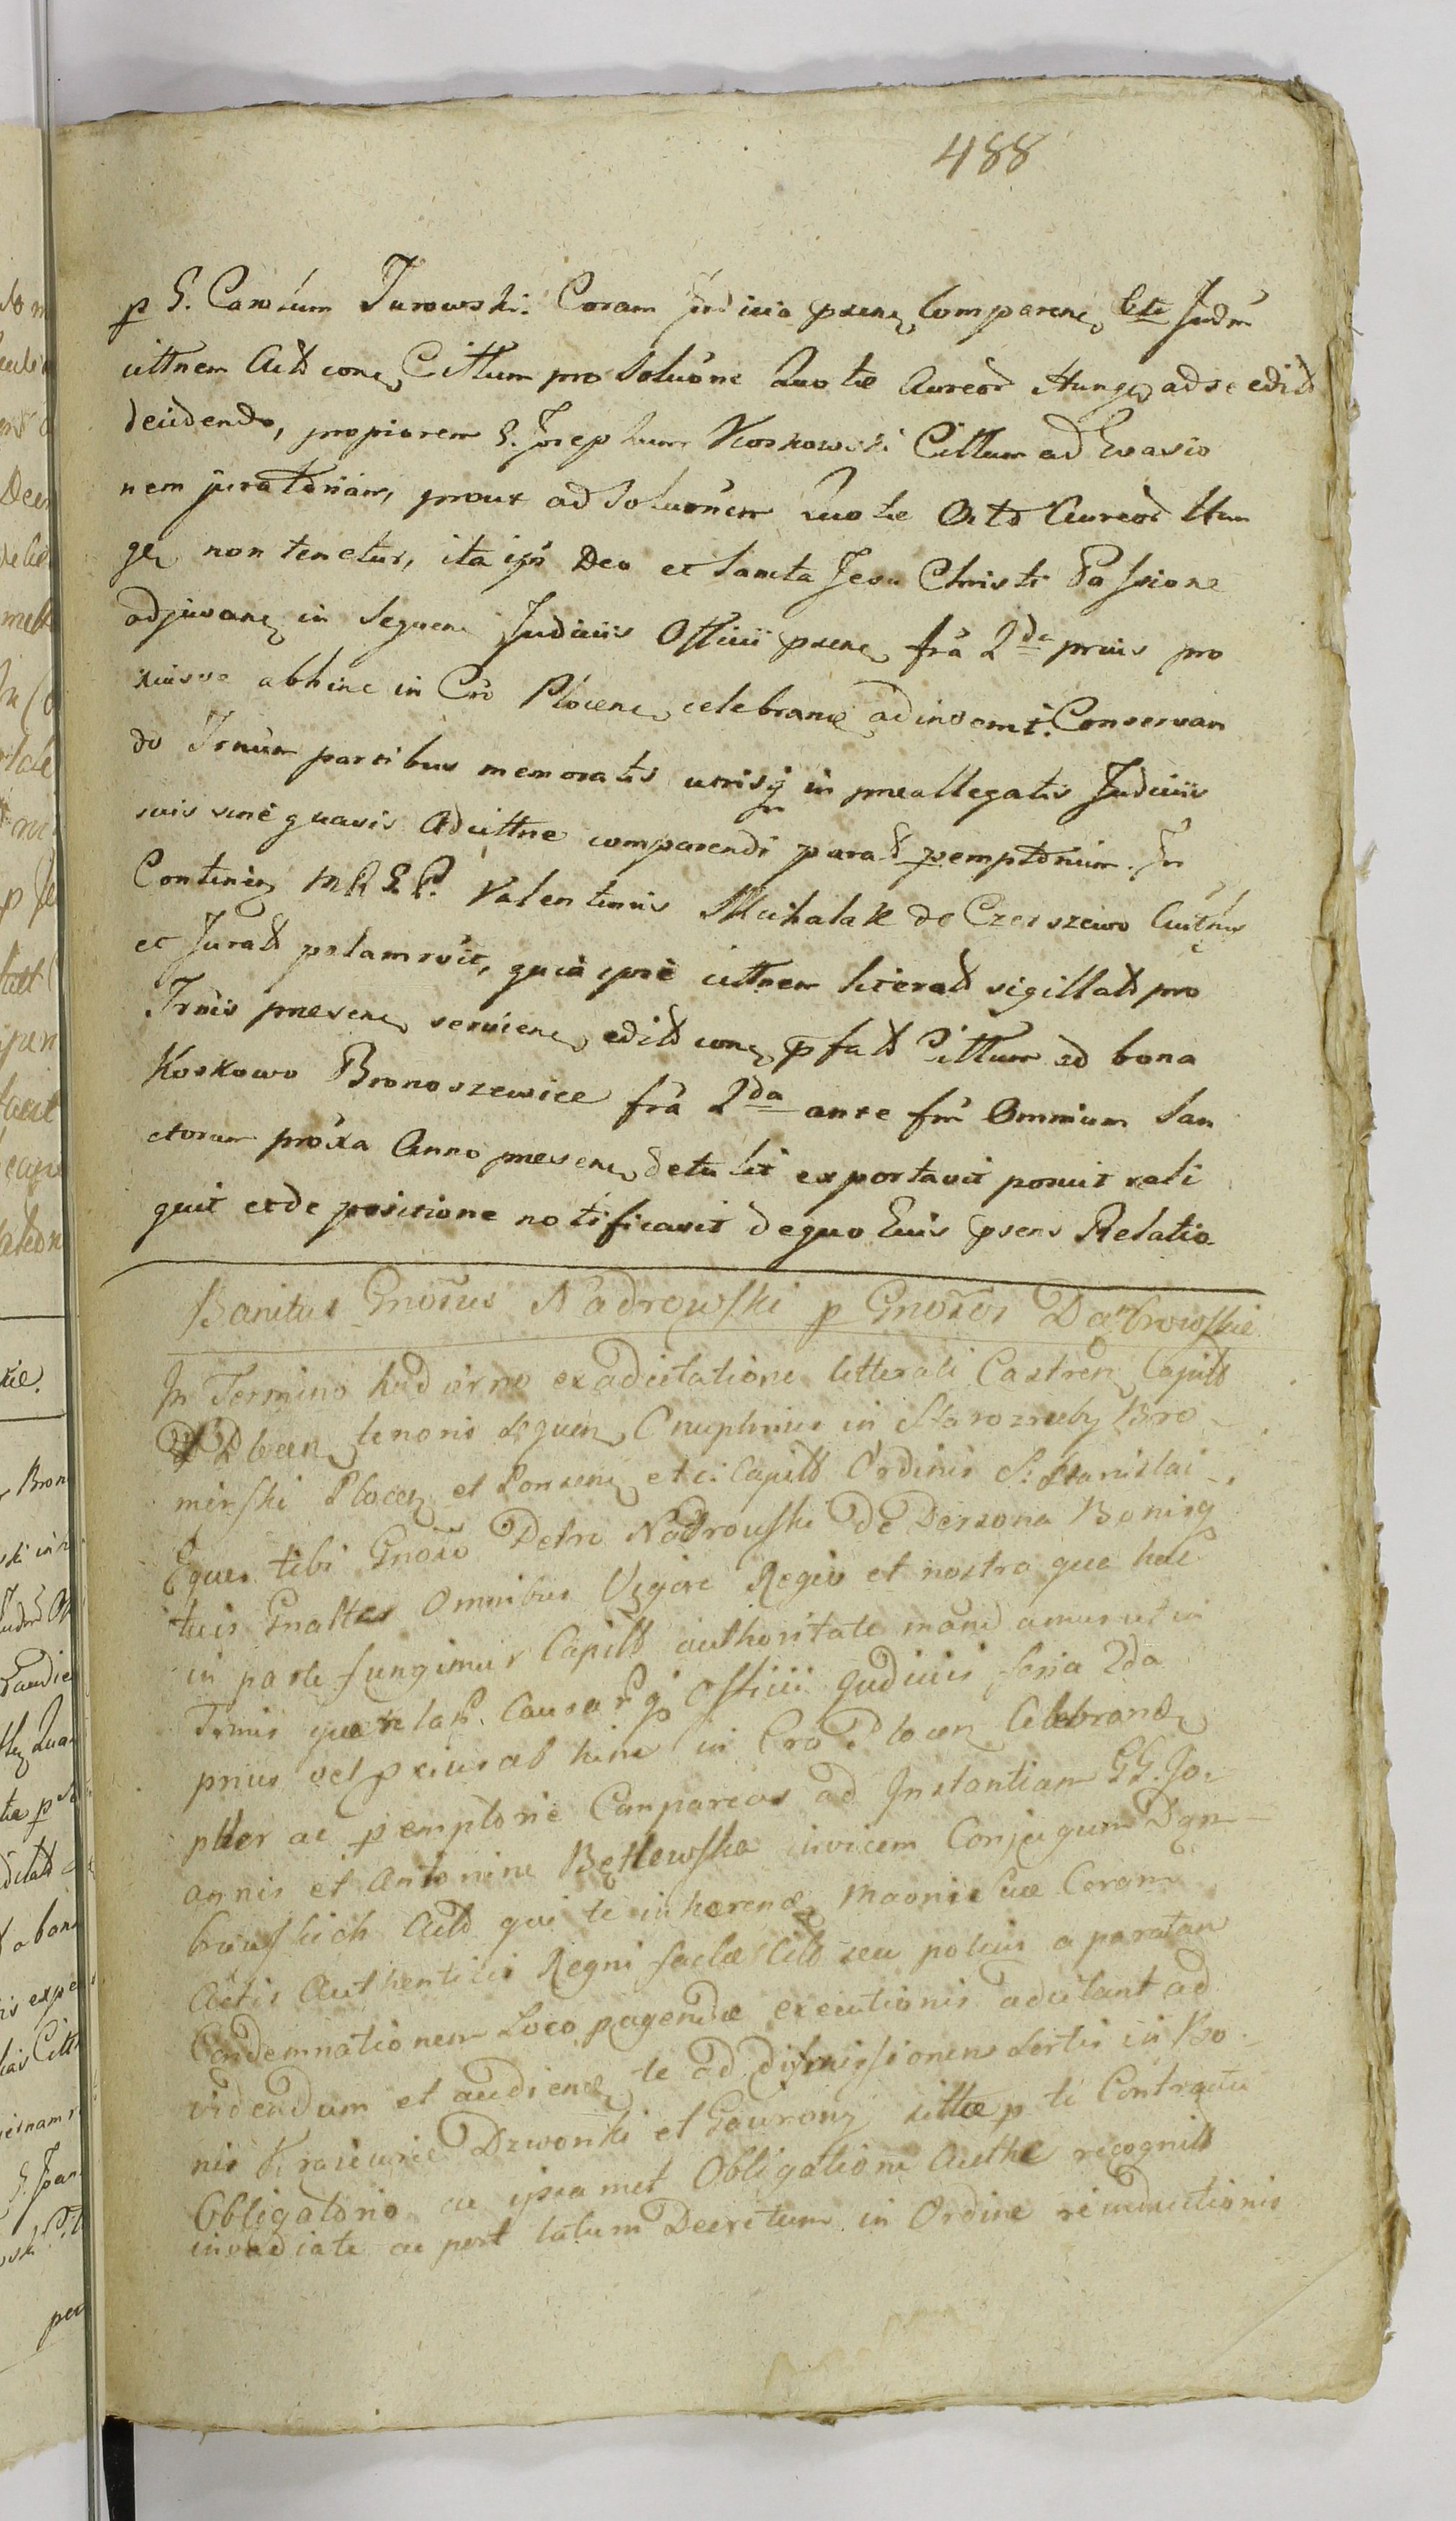 488
p G. Carolum Turowski. Coram Judicio psene Comparene, Ctte Judm
cittnem Actt cone, Cittum pro Solucne Quotæ Aureor Hunge, ad se editt
deudendo, propiorem G. Josephum Koskowski Cittum ad Evasio
nem juratoriam, prout ad Solucnem Quotæ Octo Aureor Hun
ge non tenetur, ita ipsi Deo et Sancta Jesu Christi Passione
adjuvane, in Sequen Judiciis Officii psene, fra 2da prius pro
xiusve abhinc in Cro Plocene, celebrane adinvemt. Conservan
do Trnum partibus memoratis utrisq in praeallegatis Judiciis
suis sine quavis Adcittne comparendi paratt pemptorium. In
Contineñ MRSP. Valentinus Michalak de Czerszewo Authus
et Juratt palam rcvit, quia ipse cittnem literatt sigillatt pro
Trnis praesene, serviene, editt cone, pfatt Cittum ad bona
Koskowo Bronoszewice fra 2da ante fm Omnium San
ctorum proxa Anno praesene, detulit exportavit posuit reli
quit et de positione notificavit de quo Eius psens Relatio
Banitus Gnosus Nadrowski p Gnosos Dąbrowskie
In Termino hodierno ex adcitatione litterali Castren, Capitt
Plocen, tenoris sequen, Onuphrius in Starozreby Bro
mirski Plocen et Ponsene etc: Capitt Ordinis S: Stanislai
Eques tibi Gnoso Petro Nadrouski de Persona Bonisq
tuis Gnaltes Omnibus Vigore Regio et nostra qua hac
in parte fungimur Capitt authoritate mand amus ut in
Trnis querelar. Causarq Officii Judiciis feria 2da
prius vel pxius ab hinc in Cro Plocen Celebrande
pltter ac pemptorie Compareas ad Instantiam GG. Jo-
annis et Antonine Bętlewska invicem Conjugum Dąm
browskich Actt qui te inhærende Maonie suæ Coram
Actis Authenticis Regni factæ Citt seu potius a paratam
Condemnationem Loco pagendæ executionis adcitant ad
videndum et audiende te ad dismissionem Sortis in Bo-
nis Krasiewie Dzwonki et Gourony sittæ p te Contractu
Obligatorio ac ipsamet Obligatione Authe recognitt
invadiate ac post latum Decretum in Ordine reinductionis